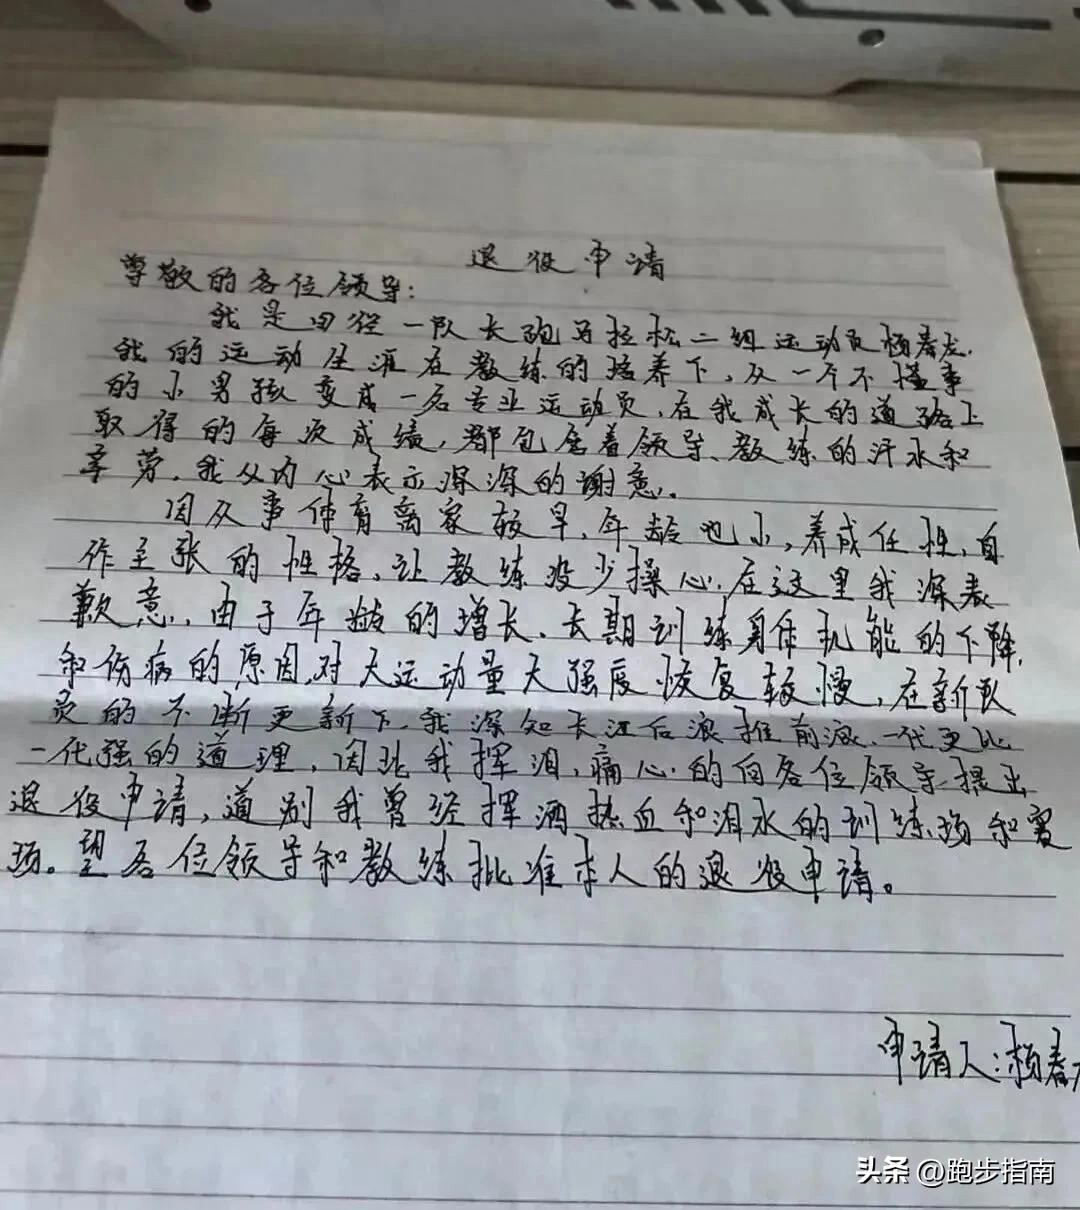 退役申请
尊敬的各位领导:
我是田径一队长跑马拉松二组运动员杨春龙.
我的运动生涯在教练的培养下、从一个不懂事
的小男孩变成一名专业运动员,在我成长的道路上
取得的每次成绩,都包含着领导、教练的汗水和
辛劳,我从内心表示深深的谢意。
因从事体育离家较早,年龄也小,养成任性,自
作主张的性格、让教练没少操心.在这里我深表
歉意,由于年龄的增长、长期训练身体机能的下降,
和伤病的原因,对大运动量大强度恢复较慢,在新队
员的不断更新下.我深知长江后浪推前浪.一代更比
一代强的道理,因此我挥泪,痛心的向各位领导提出
退役申请,道别我曾经挥洒热血和泪水的训练场和赛
场。望各位领导和教练批准本人的退役申请。
申请人:杨春
头条 @跑步指南